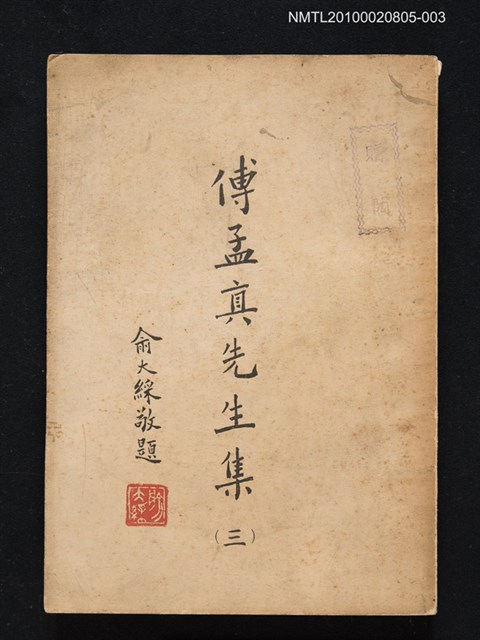 NMTL20100020805-003
傅孟真先生集
(三)
俞大綵敬題
俞大綵